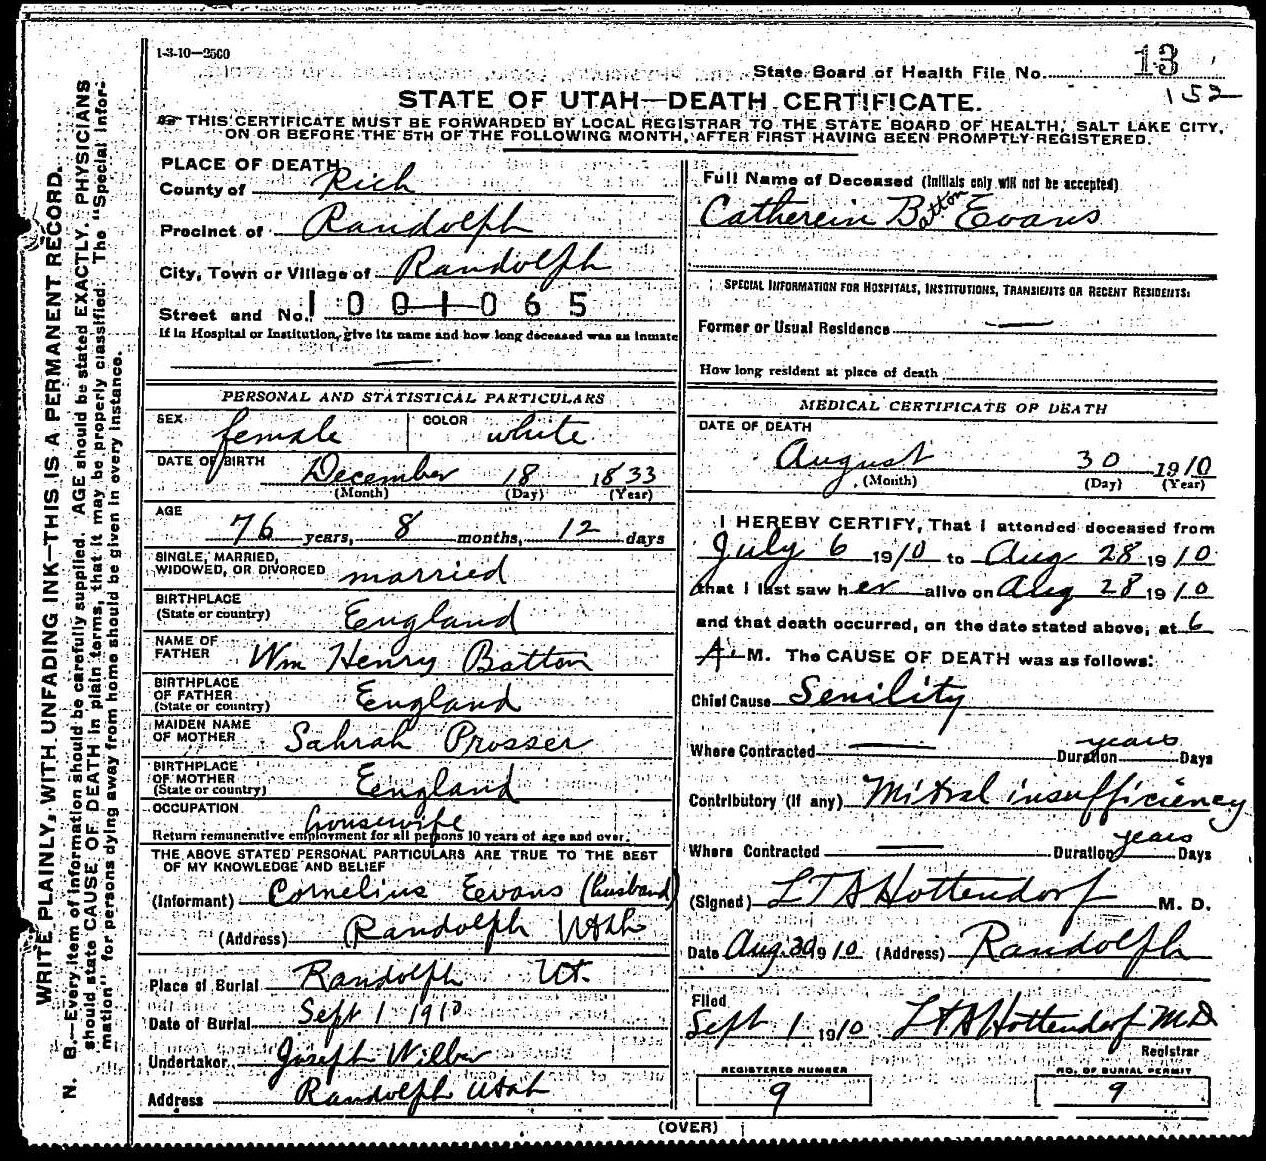 1-3-10—2500
State Board of Health File No. 13
152
STATE OF UTAH—DEATH CERTIFICATE.
THIS CERTIFICATE MUST BE FORWARDED BY LOCAL REGISTRAR TO THE STATE BOARD OF HEALTH, SALT LAKE CITY,
ON OR BEFORE THE 5TH OF THE FOLLOWING MONTH, AFTER FIRST HAVING BEEN PROMPTLY REGISTERED.
WRITE PLAINLY, WITH UNFADING INK—THIS IS A PERMANENT RECORD.
N. B.—Every item of information should be carefully supplied. AGE should be stated EXACTLY. PHYSICIANS
should state CAUSE OF DEATH in plain terms, that it may be properly classified. The "Special Infor-
mation" for persons dying away from home should be given in every instance.
PLACE OF DEATH
County of Rich
Precinct of Randolph
City, Town or Village of Randolph
Street and No. 1001065
If in Hospital or Institution, give its name and how long deceased was an inmate
PERSONAL AND STATISTICAL PARTICULARS
SEX female COLOR white
DATE OF BIRTH December 18 1833
(Month) (Day) (Year)
AGE
76 years, 8 months, 12 days
SINGLE, MARRIED,
WIDOWED, OR DIVORCED married
BIRTHPLACE
(State or country) England
NAME OF
FATHER Wm Henry Batton
BIRTHPLACE
OF FATHER
(State or country) England
MAIDEN NAME
OF MOTHER Sahrah Prosser
BIRTHPLACE
OF MOTHER
(State or country) England
OCCUPATION housewife
Return remunerative employment for all persons 10 years of age and over.
THE ABOVE STATED PERSONAL PARTICULARS ARE TRUE TO THE BEST
OF MY KNOWLEDGE AND BELIEF
(Informant) Cornelius Eevans (husband)
(Address) Randolph Utah
Place of Burial Randolph Ut.
Date of Burial Sept 1 1910
Undertaker Joseph Wilber
Address Randolph Utah
Full Name of Deceased (Initials only will not be accepted)
Catherein Batton Evans
SPECIAL INFORMATION FOR HOSPITALS, INSTITUTIONS, TRANSIENTS OR RECENT RESIDENTS:
Former or Usual Residence
How long resident at place of death
MEDICAL CERTIFICATE OF DEATH
DATE OF DEATH
August 30 1910
(Month) (Day) (Year)
I HEREBY CERTIFY, That I attended deceased from
July 6 1910 to Aug 28 1910
that I last saw her alive on Aug 28 1910
and that death occurred, on the date stated above, at 6
A. M. The CAUSE OF DEATH was as follows:
Chief Cause Senility
Where Contracted Duration years Days
Contributory (if any) Mitral insufficiency
Where Contracted Duration years Days
(Signed) L T A Hottendorf M. D.
Date Aug. 30 1910 (Address) Randolph
Filed
Sept 1 1910 L T A Hottendorf M.D
Registrar
REGISTERED NUMBER
9
NO. OF BURIAL PERMIT
9
(OVER)